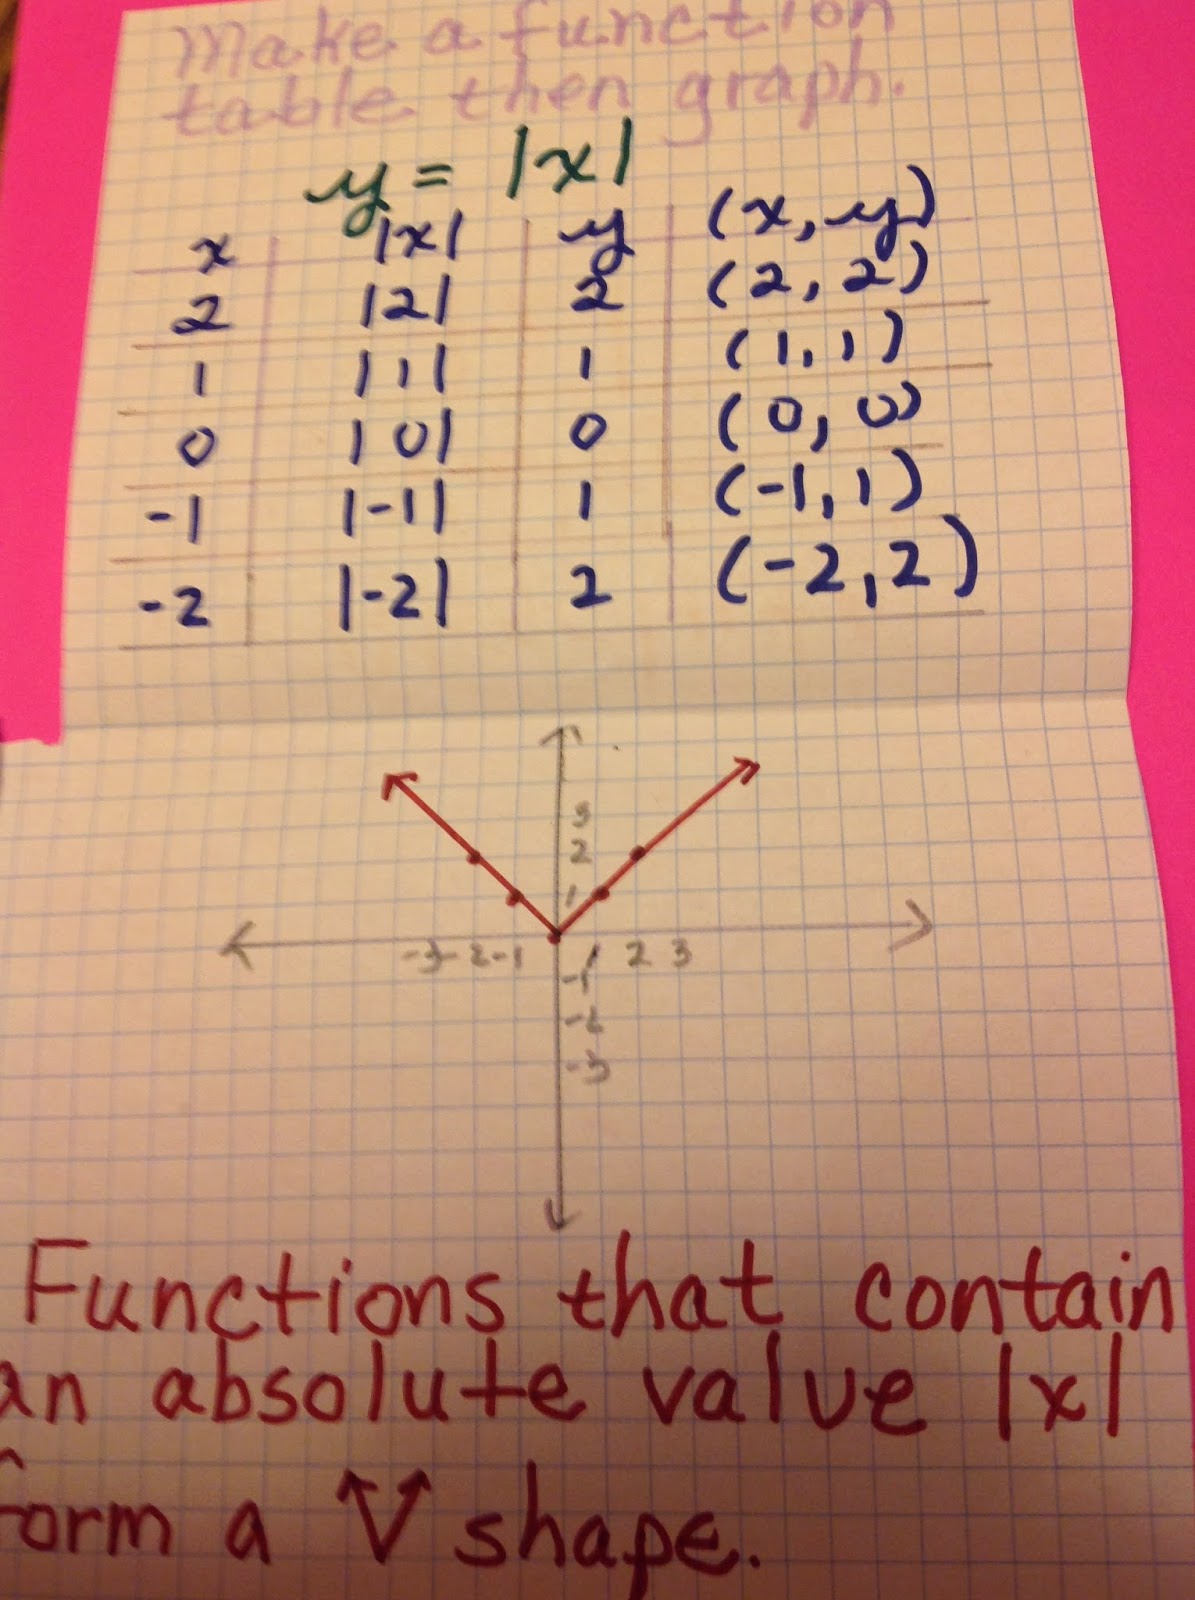 Make a function
table then graph.
y = |x|
x |x| y (x, y)
2 |2| 2 (2, 2)
1 |1| 1 (1, 1)
0 |0| 0 (0, 0)
-1 |-1| 1 (-1, 1)
-2 |-2| 2 (-2, 2)
3
2
1
-3 -2 -1 1 2 3
-1
-2
-3
Functions that contain
an absolute value |x|
form a V shape.